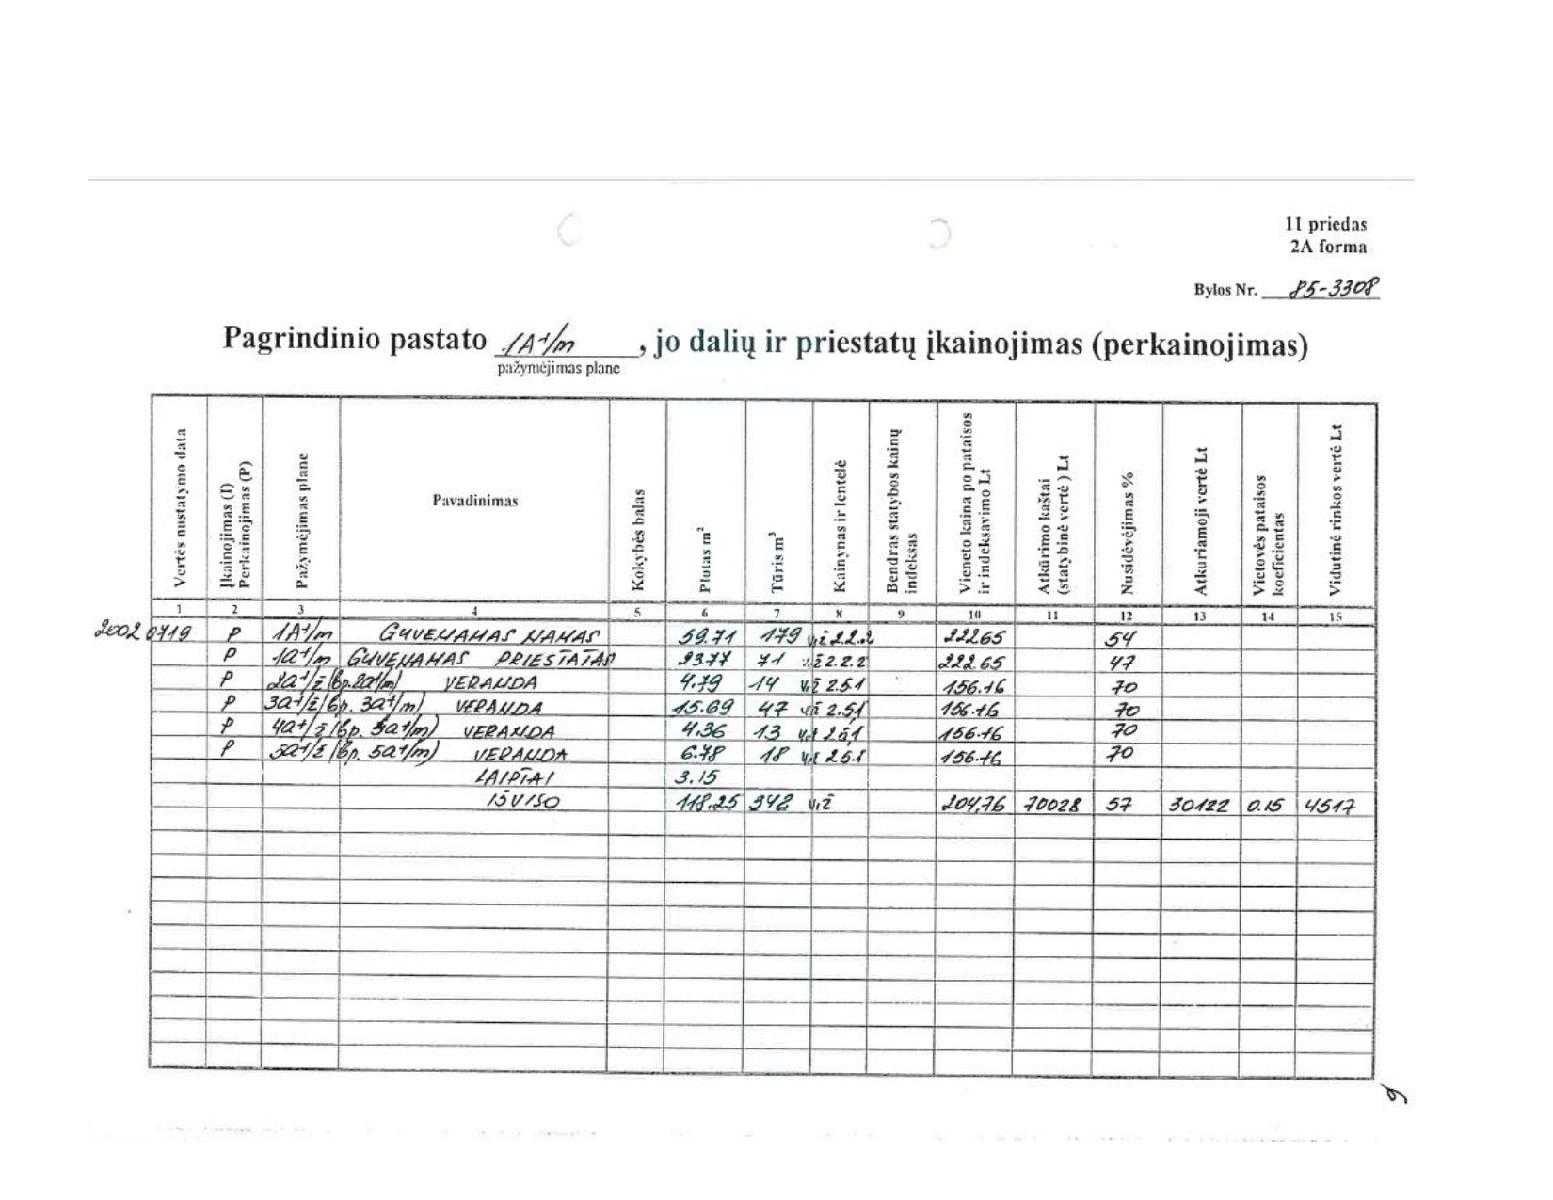 11 priedas
2A forma
Bylos Nr. 85-3308
Pagrindinio pastato 1A1/m , jo dalių ir priestatų įkainojimas (perkainojimas)
pažymėjimas plane
Vertės nustatymo data
Įkainojimas (I) Perkainojimas (P)
Pažymėjimas plane
Pavadinimas
Kokybės balas
Plotas m²
Tūris m³
Kainynas ir lentelė
Bendras statybos kainų indeksas
Vieneto kaina po pataisos ir indeksavimo Lt
Atkūrimo kaštai (statybinė vertė ) Lt
Nusidėvėjimas %
Atkuriamoji vertė Lt
Vietovės pataisos koeficientas
Vidutinė rinkos vertė Lt
1 2 3 4 5 6 7 8 9 10 11 12 13 14 15
2002 0719 P 1A1/m GYVENAMAS NAMAS 59.71 179 V,ž 2.2.2 222.65 54
P 1a1/m GYVENAMAS PRIESTATAS 71 2.2.2 222.65 47
P 2a1/ž (bp. 2a1/m) VERANDA 4.79 14 V,ž 2.51 156.16 70
P 3a1/ž (bp. 3a1/m) VERANDA 15.69 47 2.51 156.16 70
P 4a1/ž (bp. 1/m) VERANDA 4.36 13 2.51 156.16 70
P 5a1/ž (bp. 5a1/m) VERANDA 6.78 18 2.51 156.16 70
LAIPTAI 3.15
IŠVISO 118.25 342 V,ž 204,76 70028 57 30122 0.15 4517